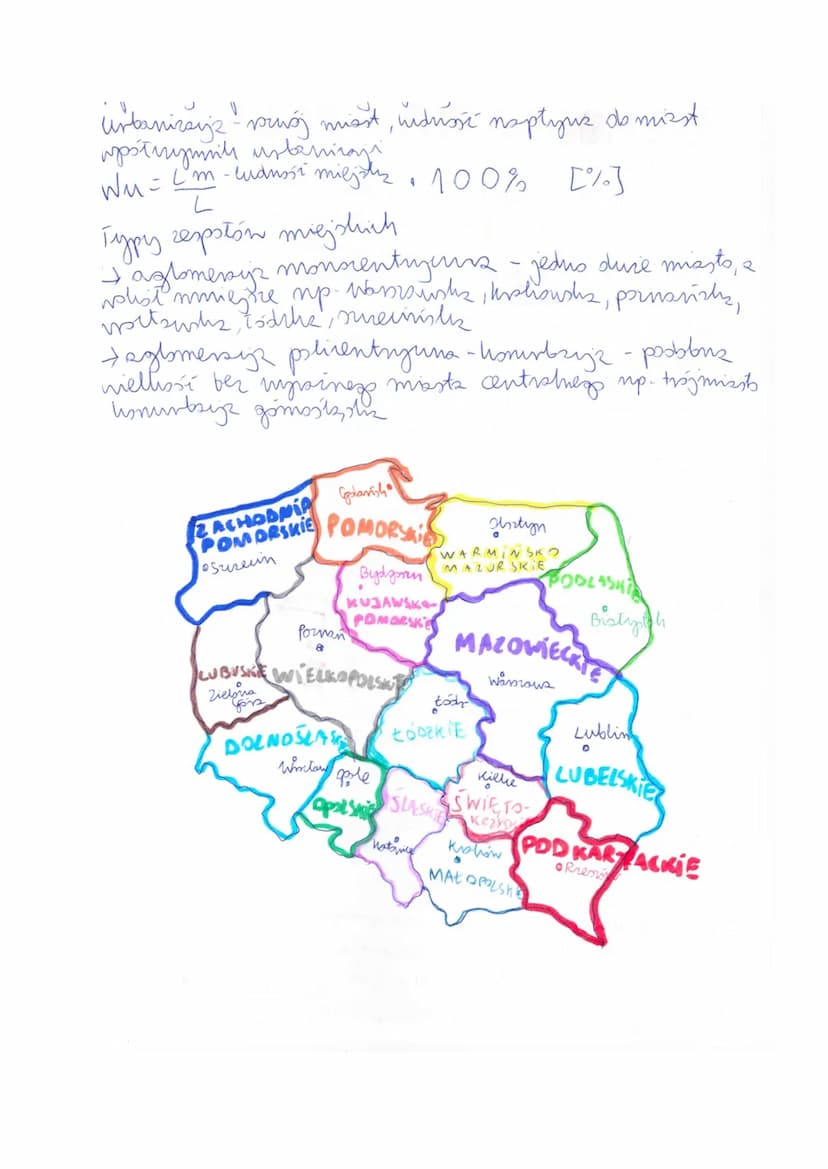 urbanizacja - rozwój miast, ludność napływa do miast
współczynnik urbanizacji
Wu = Lm - ludność miejska / L · 100% [%]
Typy zespołów miejskich
→ aglomeracja monocentryczna - jedno duże miasto, a
wokół mniejsze np. Warszawska, krakowska, poznańska,
wrocławska, łódzka, szczecińska
→ aglomeracja policentryczna - konurbacja - podobna
wielkość bez wyraźnego miasta centralnego np. trójmiasto
konurbacja górnośląska
Gdańsk
ZACHODNIO
POMORSKIE
POMORSKIE
Szczecin
Olsztyn
WARMIŃSKO
MAZURSKIE
Bydgoszcz
KUJAWSKO-
POMORSKIE
PODLASKIE
Białystok
Poznań
WIELKOPOLSKIE
MAZOWIECKIE
Warszawa
LUBUSKIE
Zielona
Góra
Łódź
ŁÓDZKIE
Lublin
LUBELSKIE
DOLNOŚLĄSKIE
Wrocław
Opole
OPOLSKIE
ŚLĄSKIE
Katowice
Kielce
ŚWIĘTO-
KRZYSKIE
Kraków
MAŁOPOLSKIE
PODKARPACKIE
Rzeszów